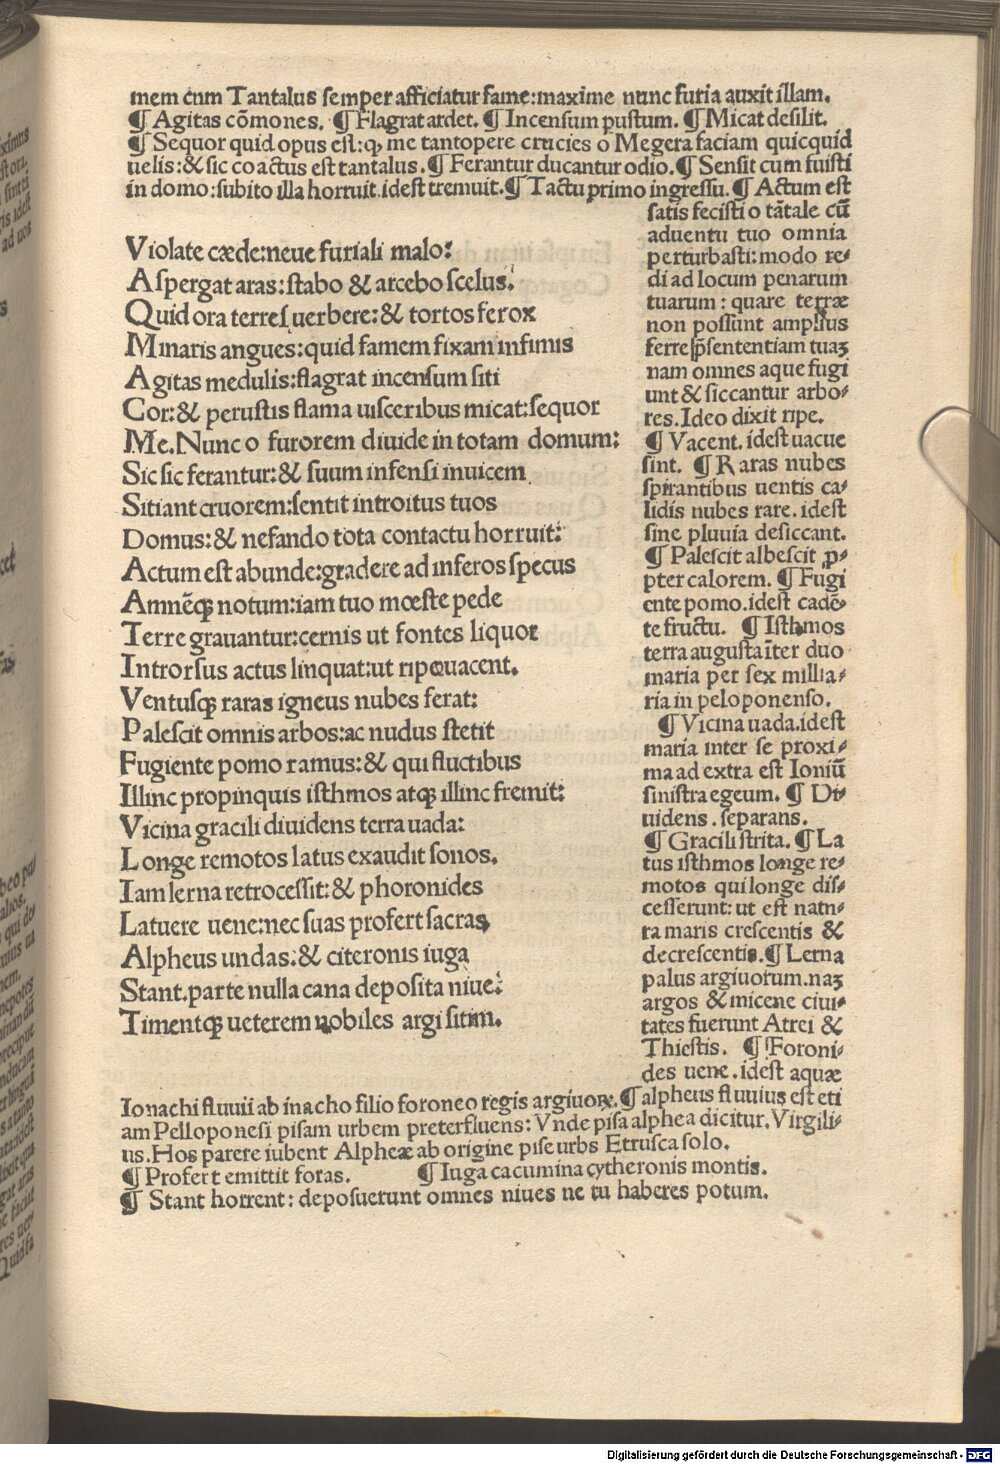 mem cnm Tantalus semper afficiatur fame:maxime nunc furia auxit illam.
¶ Agitas cõmones. ¶ Flagrat ardet. ¶ Incensum pustum. ¶ Micat desilit.
¶ Sequor quid opus est:qꝫ me tantopere crucies o Megera faciam quicquid
uelis:& sic coactus est tantalus. ¶ Ferantur ducantur odio. ¶ Sensit cum fuisti
in domo:subito illa horruit.idest tremuit. ¶ Tactu primo ingressu. ¶ Actum est
satis fecisti o tãtale cũ
aduentu tuo omnia
perturbasti:modo re-
di ad locum penarum
tuarum : quare terræ
non possunt amplius
ferre p̃sententiam tuaꝫ
nam omnes aque fugi
unt & siccantur arbo-
res.Ideo dixit ripe.
¶ Vacent. idest uacue
sint. ¶ Raras nubes
spirantibus uentis ca-
lidis nubes rare. idest
sine pluuia desiccant.
¶ Palescit albescit ꝓ-
pter calorem. ¶ Fugi
ente pomo.idest cadẽ-
te fructu. ¶ Isthmos
terra augusta ĩter duo
maria per sex millia-
ria in peloponenso.
¶ Vicina uada.idest
maria inter se proxi-
ma ad extra est Ioniũ
sinistra egeum. ¶ Di-
uidens . separans.
¶ Gracili strita. ¶ La
tus isthmos longe re-
motos qui longe dis-
cesserunt: ut est natu-
ra maris crescentis &
decrescentis. ¶ Lerna
palus argiuorum.naꝫ
argos & micene ciui-
tates fuerunt Atrei &
Thiestis. ¶ Foroni-
des uene . idest aquæ
Violate cæde:neue furiali malo:
Aspergat aras:stabo & arcebo scelus.
Quid ora terres uerbere:& tortos ferox
Minaris angues:quid famem fixam infimis
Agitas medulis:flagrat incensum siti
Cor:& perustis flama uisceribus micat:sequor
Me.Nunc o furorem diuide in totam domum:
Sic sic ferantur:& suum infensi inuicem
Sitiant cruorem:sentit introitus tuos
Domus:& nefando tota contactu horruit:
Actum est abunde:gradere ad inferos specus
Amnẽqꝫ notum:iam tuo mœste pede
Terre grauantur:cernis ut fontes liquor
Introrsus actus linquat:ut ripe uacent.
Ventusqꝫ raras igneus nubes ferat:
Palescit omnis arbos:ac nudus stetit
Fugiente pomo ramus:& qui fluctibus
Illinc propinquis isthmos atqꝫ illinc fremit:
Vicina gracili diuidens terra uada:
Longe remotos latus exaudit sonos.
Iam lerna retrocessit:& phoronides
Latuere uene:nec suas profert sacras
Alpheus undas:& citeronis iuga
Stant.parte nulla cana deposita niue:
Timentqꝫ ueterem nobiles argi sitim.
Ionachi fluuii ab inacho filio foroneo regis argiuoꝝ. ¶ alpheus fluuius est eti
am Pelloponesi pisam urbem preterfluens: Vnde pisa alphea dicitur. Virgili-
us.Hos parere iubent Alpheæ ab origine pise urbs Etrusca solo.
¶ Profert emittit foras. ¶ Iuga cacumina cytheronis montis.
¶ Stant horrent: deposuerunt omnes niues ne tu haberes potum.
Digitalisierung gefördert durch die Deutsche Forschungsgemeinschaft - DFG